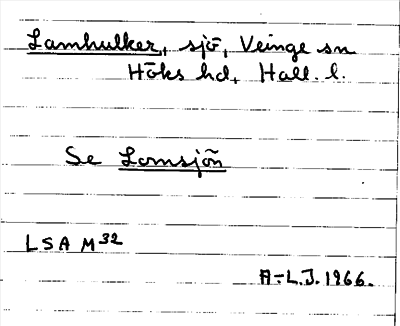 Lamhulker, sjö, Veinge sn
Höks hd, Hall. l.
Se Lomsjön
LSA M32
A-L.J. 1966.